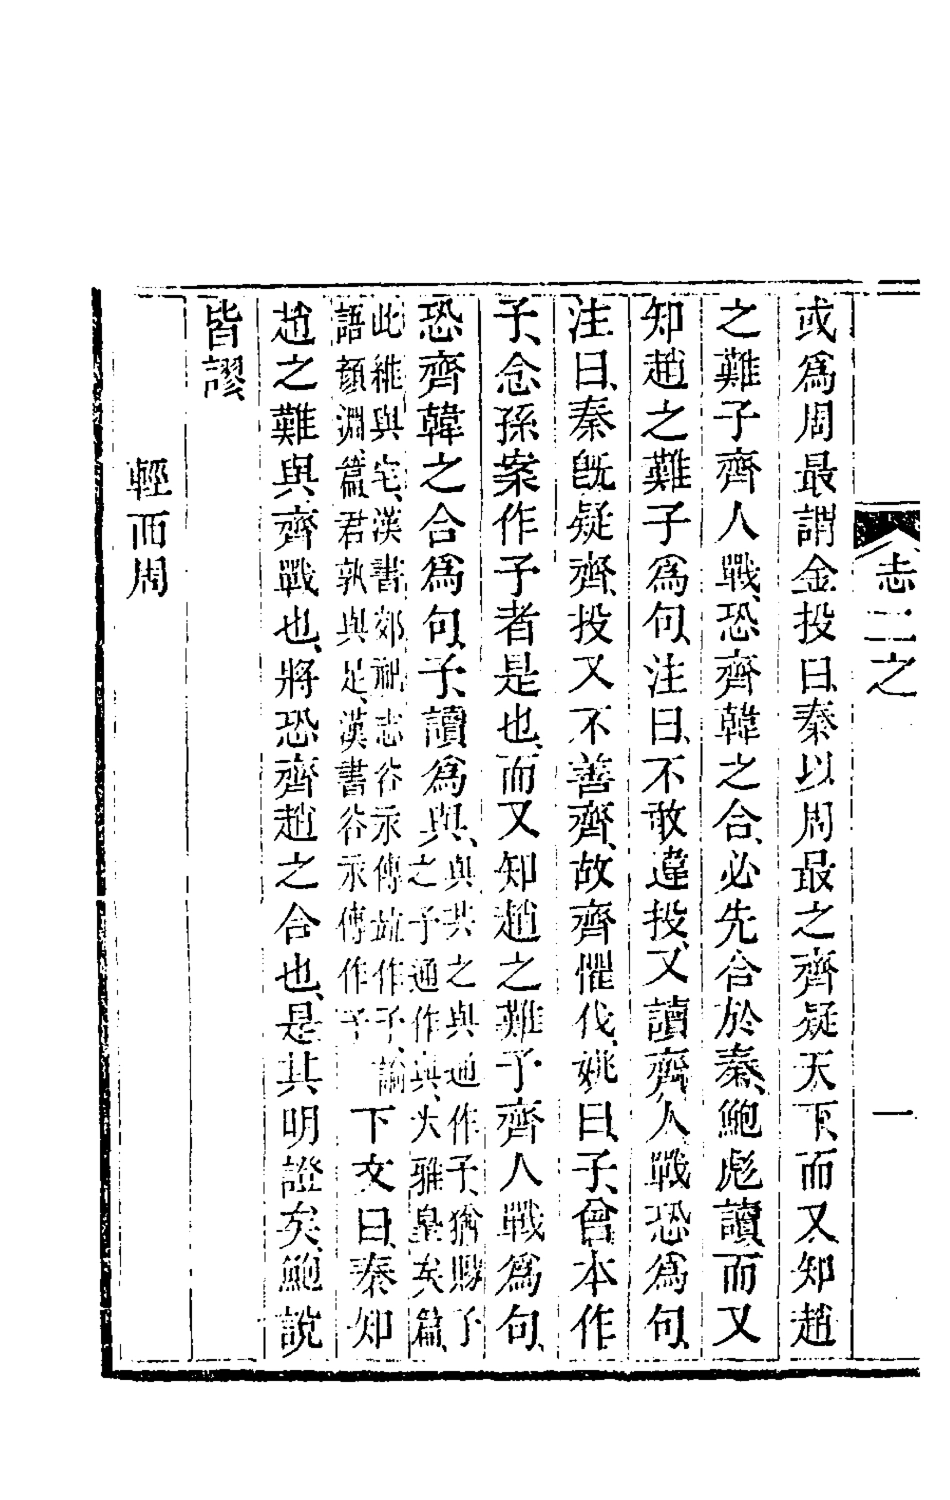 志二之　一
或爲周最謂金投曰、秦以周最之齊疑天下、而又知趙
之難子齊人戰、恐齊韓之合、必先合於秦、鮑彪讀而又
知趙之難子爲句、注曰、不敢違投、又讀齊人戰恐爲句、
注曰、秦旣疑齊、投又不善齊、故齊懼伐、姚曰、子、曾本作
予、念孫案作予者是也、而又知趙之難予齊人戰爲句、
恐齊韓之合爲句、予讀爲與、
與共之與通作予、猶賜予
之予通作與、大雅皇矣篇、
此維與宅、漢書郊祀志谷永傳竝作予、論
語顏淵篇、君孰與足、漢書谷永傳作予
下文曰、秦知
趙之難與齊戰也、將恐齊趙之合也、是其明證矣、鮑說
皆謬、
輕西周